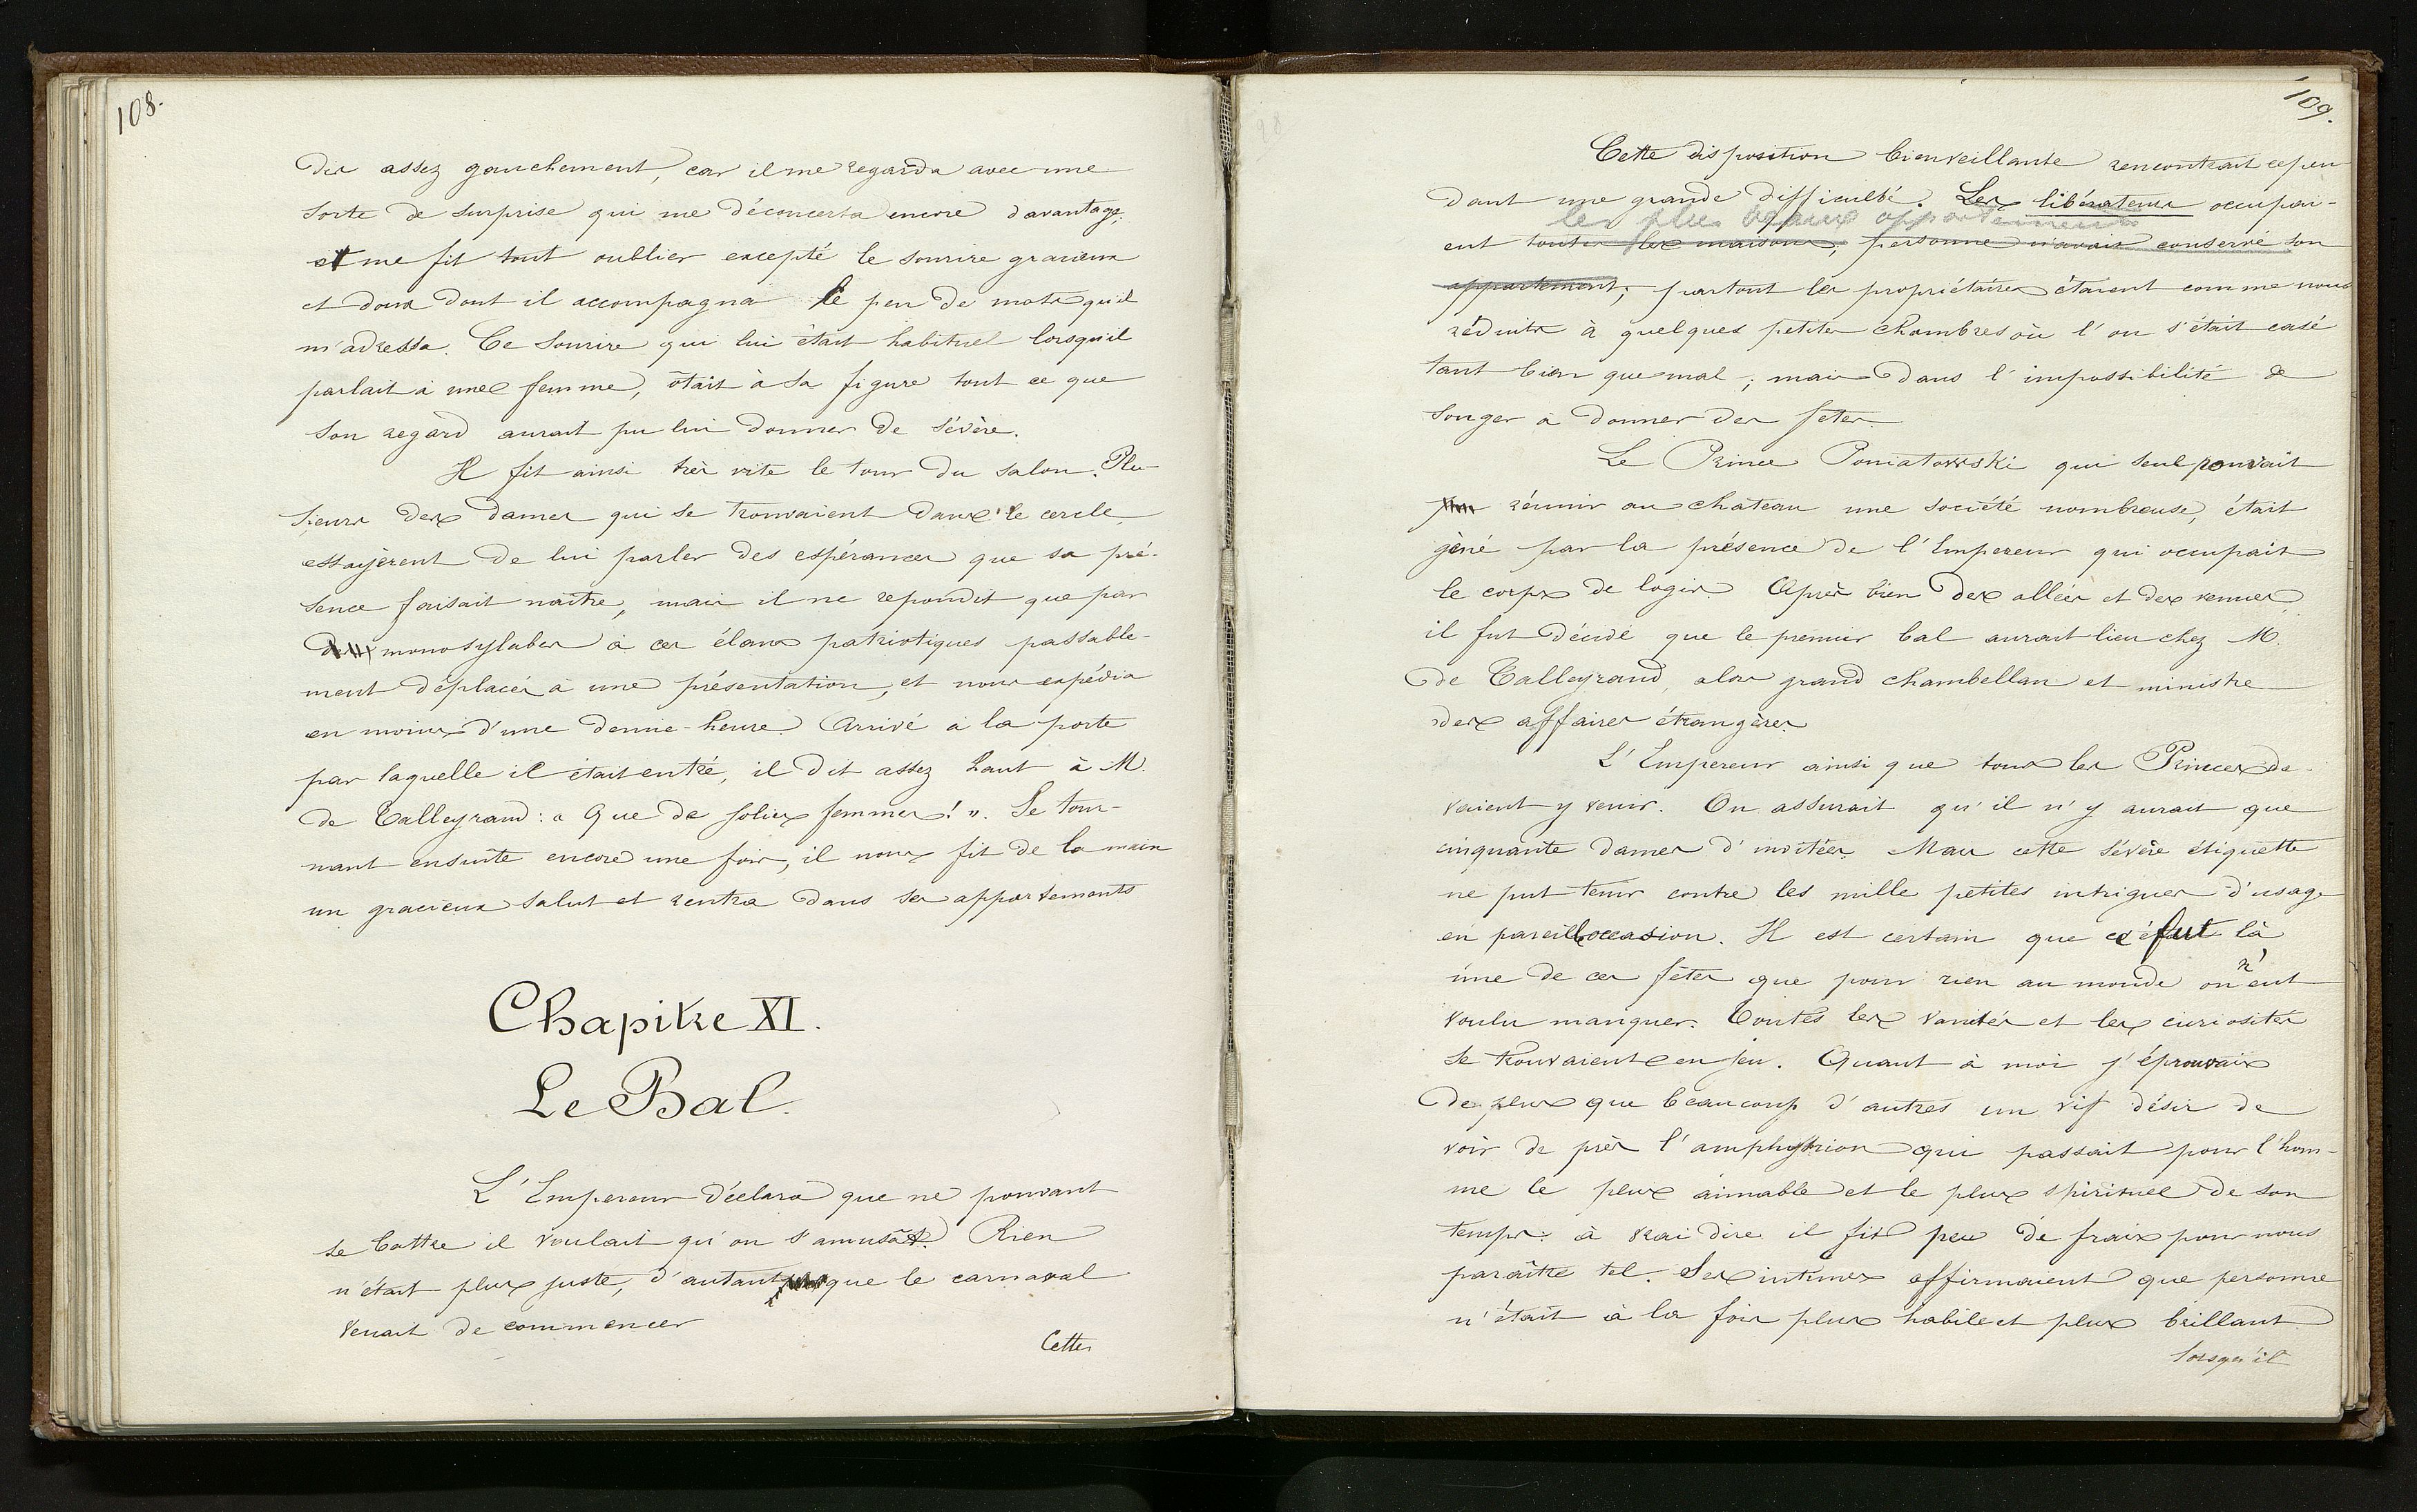 108.
dis assez gauchement, car il me regarda avec une
sorte de surprise qui me déconcerta encore davantage,
et me fit tout oublier excepté le sourire gracieux
et doux dont il accompagna le peu de mots qu'il
m'adressa. Ce sourire qui lui était habituel lorsqu'il
parlait à une femme, ôtait à sa figure tout ce que
son regard aurait pu lui donner de sévère.
Il fit ainsi très vite le tour du salon. Plu-
sieurs des dames qui se trouvaient dans le cercle
essayèrent de lui parler des espérances que sa pré-
sence faisait naître, mais il ne repondit que par
des monosylabes à ces élans patriotiques passable-
ment déplacés à une présentation, et nous expédia
en moins d'une demie-heure. Arrivé à la porte
par laquelle il était entré, il dit assez haut à M.
de Talleyrand: « Que de jolies femmes! ». Se tour-
nant ensuite encore une fois, il nous fit de la main
un gracieux salut et rentra dans ses appartements
Chapitre XI.
Le Bal.
L'Empereur déclara que ne pouvant
se battre il voulait qu'on s'amusât. Rien
n'était plus juste, d'autant que le carnaval
venait de commencer
Cette
109.
Cette disposition bienveillante rencontrait cepen
dant une grande difficulté. Les libérateurs occupai-
les plus beaux appartements
ent toutes les maisons; personne n'avait conservé son
appartement; partout les propriétaires étaient comme nous
réduits à quelques petites chambres où l'on s'était casé
tant bien que mal; mais dans l'impossibilité de
songer à donner des fetes.
Le Prince Poniatowski qui seul pouvait
réunir au chateau une société nombreuse, était
gèné par la présence de l'Empereur qui occupait
le corps de logis. Après bien des allées et des venues,
il fut décidé que le premier bal aurait lieu chez M.
de Talleyrand, alors grand chambellan et ministre
des affaires étrangères.
L'Empereur ainsi que tous les Princes de-
vaient y venir. On assurait qu'il n'y aurait que
cinquante dames d'invitées. Mais cette sévère étiquette
ne put tenir contre les mille petites intrigues d'usage
en pareille occasion. Il est certain que ce fut là
une de ces fêtes que pour rien au monde on n'eut
voulu manquer. Toutes les vanités et les curiosités
se trouvaient en jeu. Quant à moi j'éprouvais
de plus que beaucoup d'autres un vif désir de
voir de près l'amphytrion qui passait pour l'hom-
me le plus aimable et le plus spirituel de son
temps: à vrai dire il fit peu de frais pour nous
paraître tel. Ses intimes affirmaient que personne
n'était à la fois plus habile et plus brillant
lorsqu'il